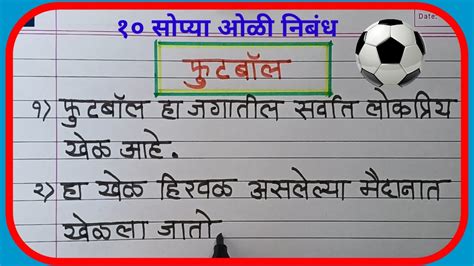 १० सोप्या ओळी निबंध
Date:
फुटबॉल
१) फुटबॉल हा जगातील सर्वात लोकप्रिय
खेळ आहे.
२) हा खेळ हिरवळ असलेल्या मैदानात
खेळला जातो